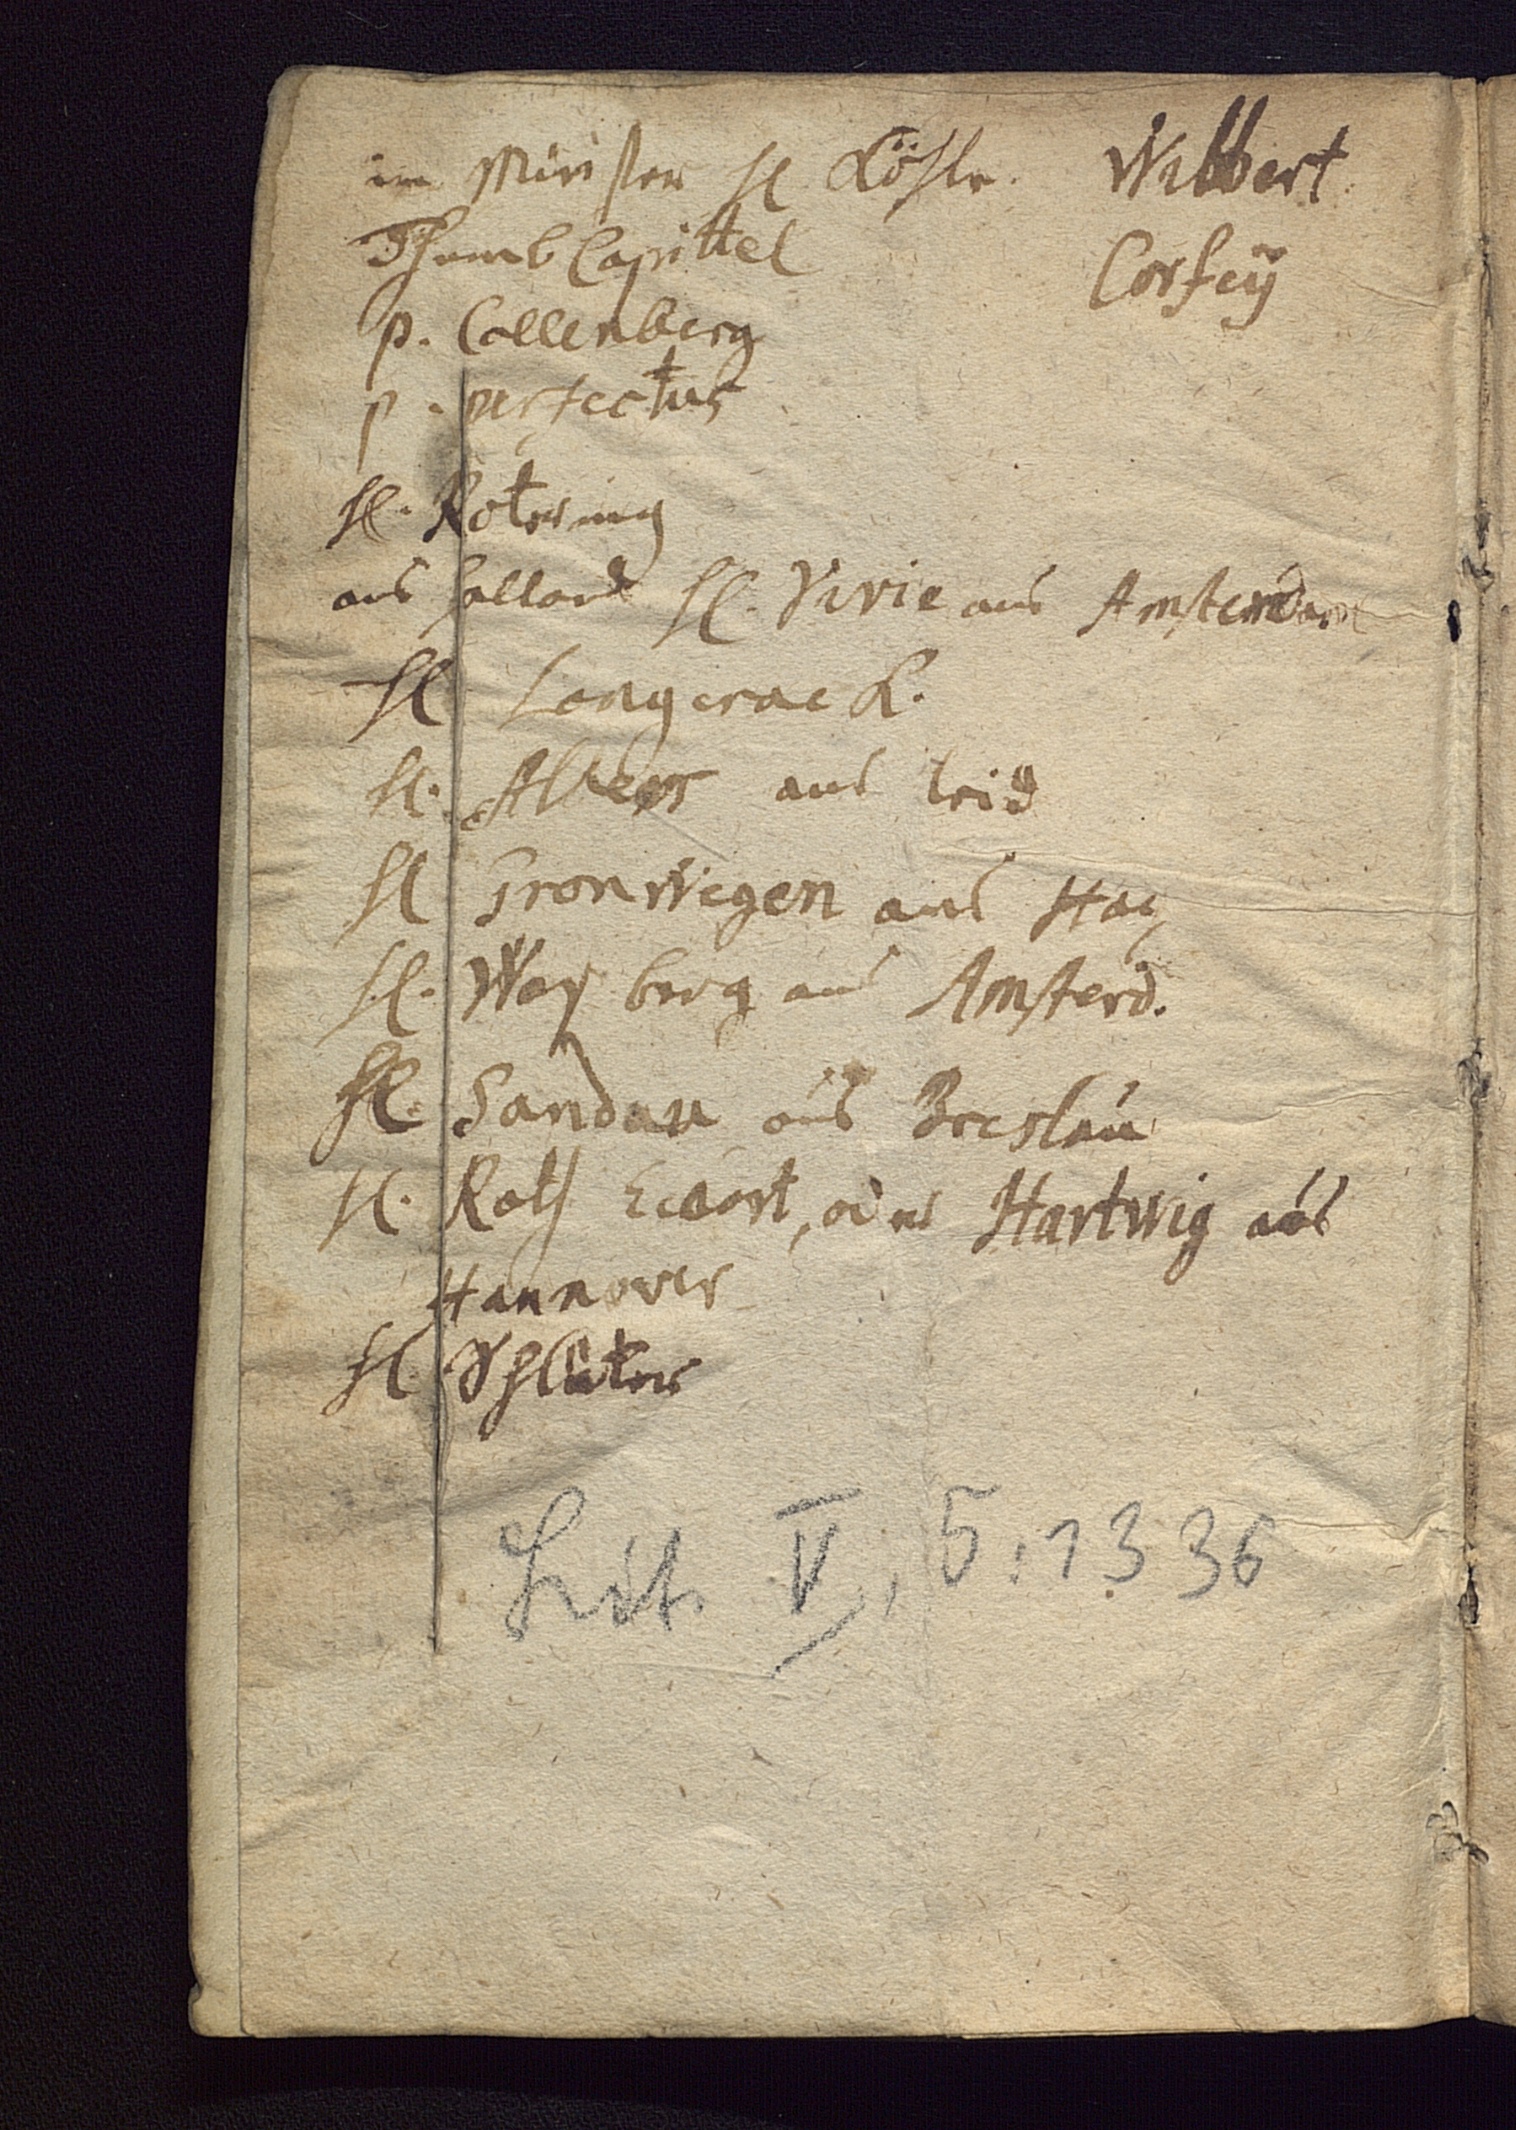 in Münster H. Löhr. Wibbert
Thumb Capittel Corfeÿ
p. Collenberg
p. perfectus
H. Rotering
aus Holland H. Virie aus Amsterdam
H Longerack.
H. Albers aus leid
H Gronwegen aus Hag
H. Way berg aus Amsterd.
H. Sandau aus Breslau
H. Rath Eccart, oder Hartwig aus
Hannover
H Schlüter
Lit. V, 5.1336